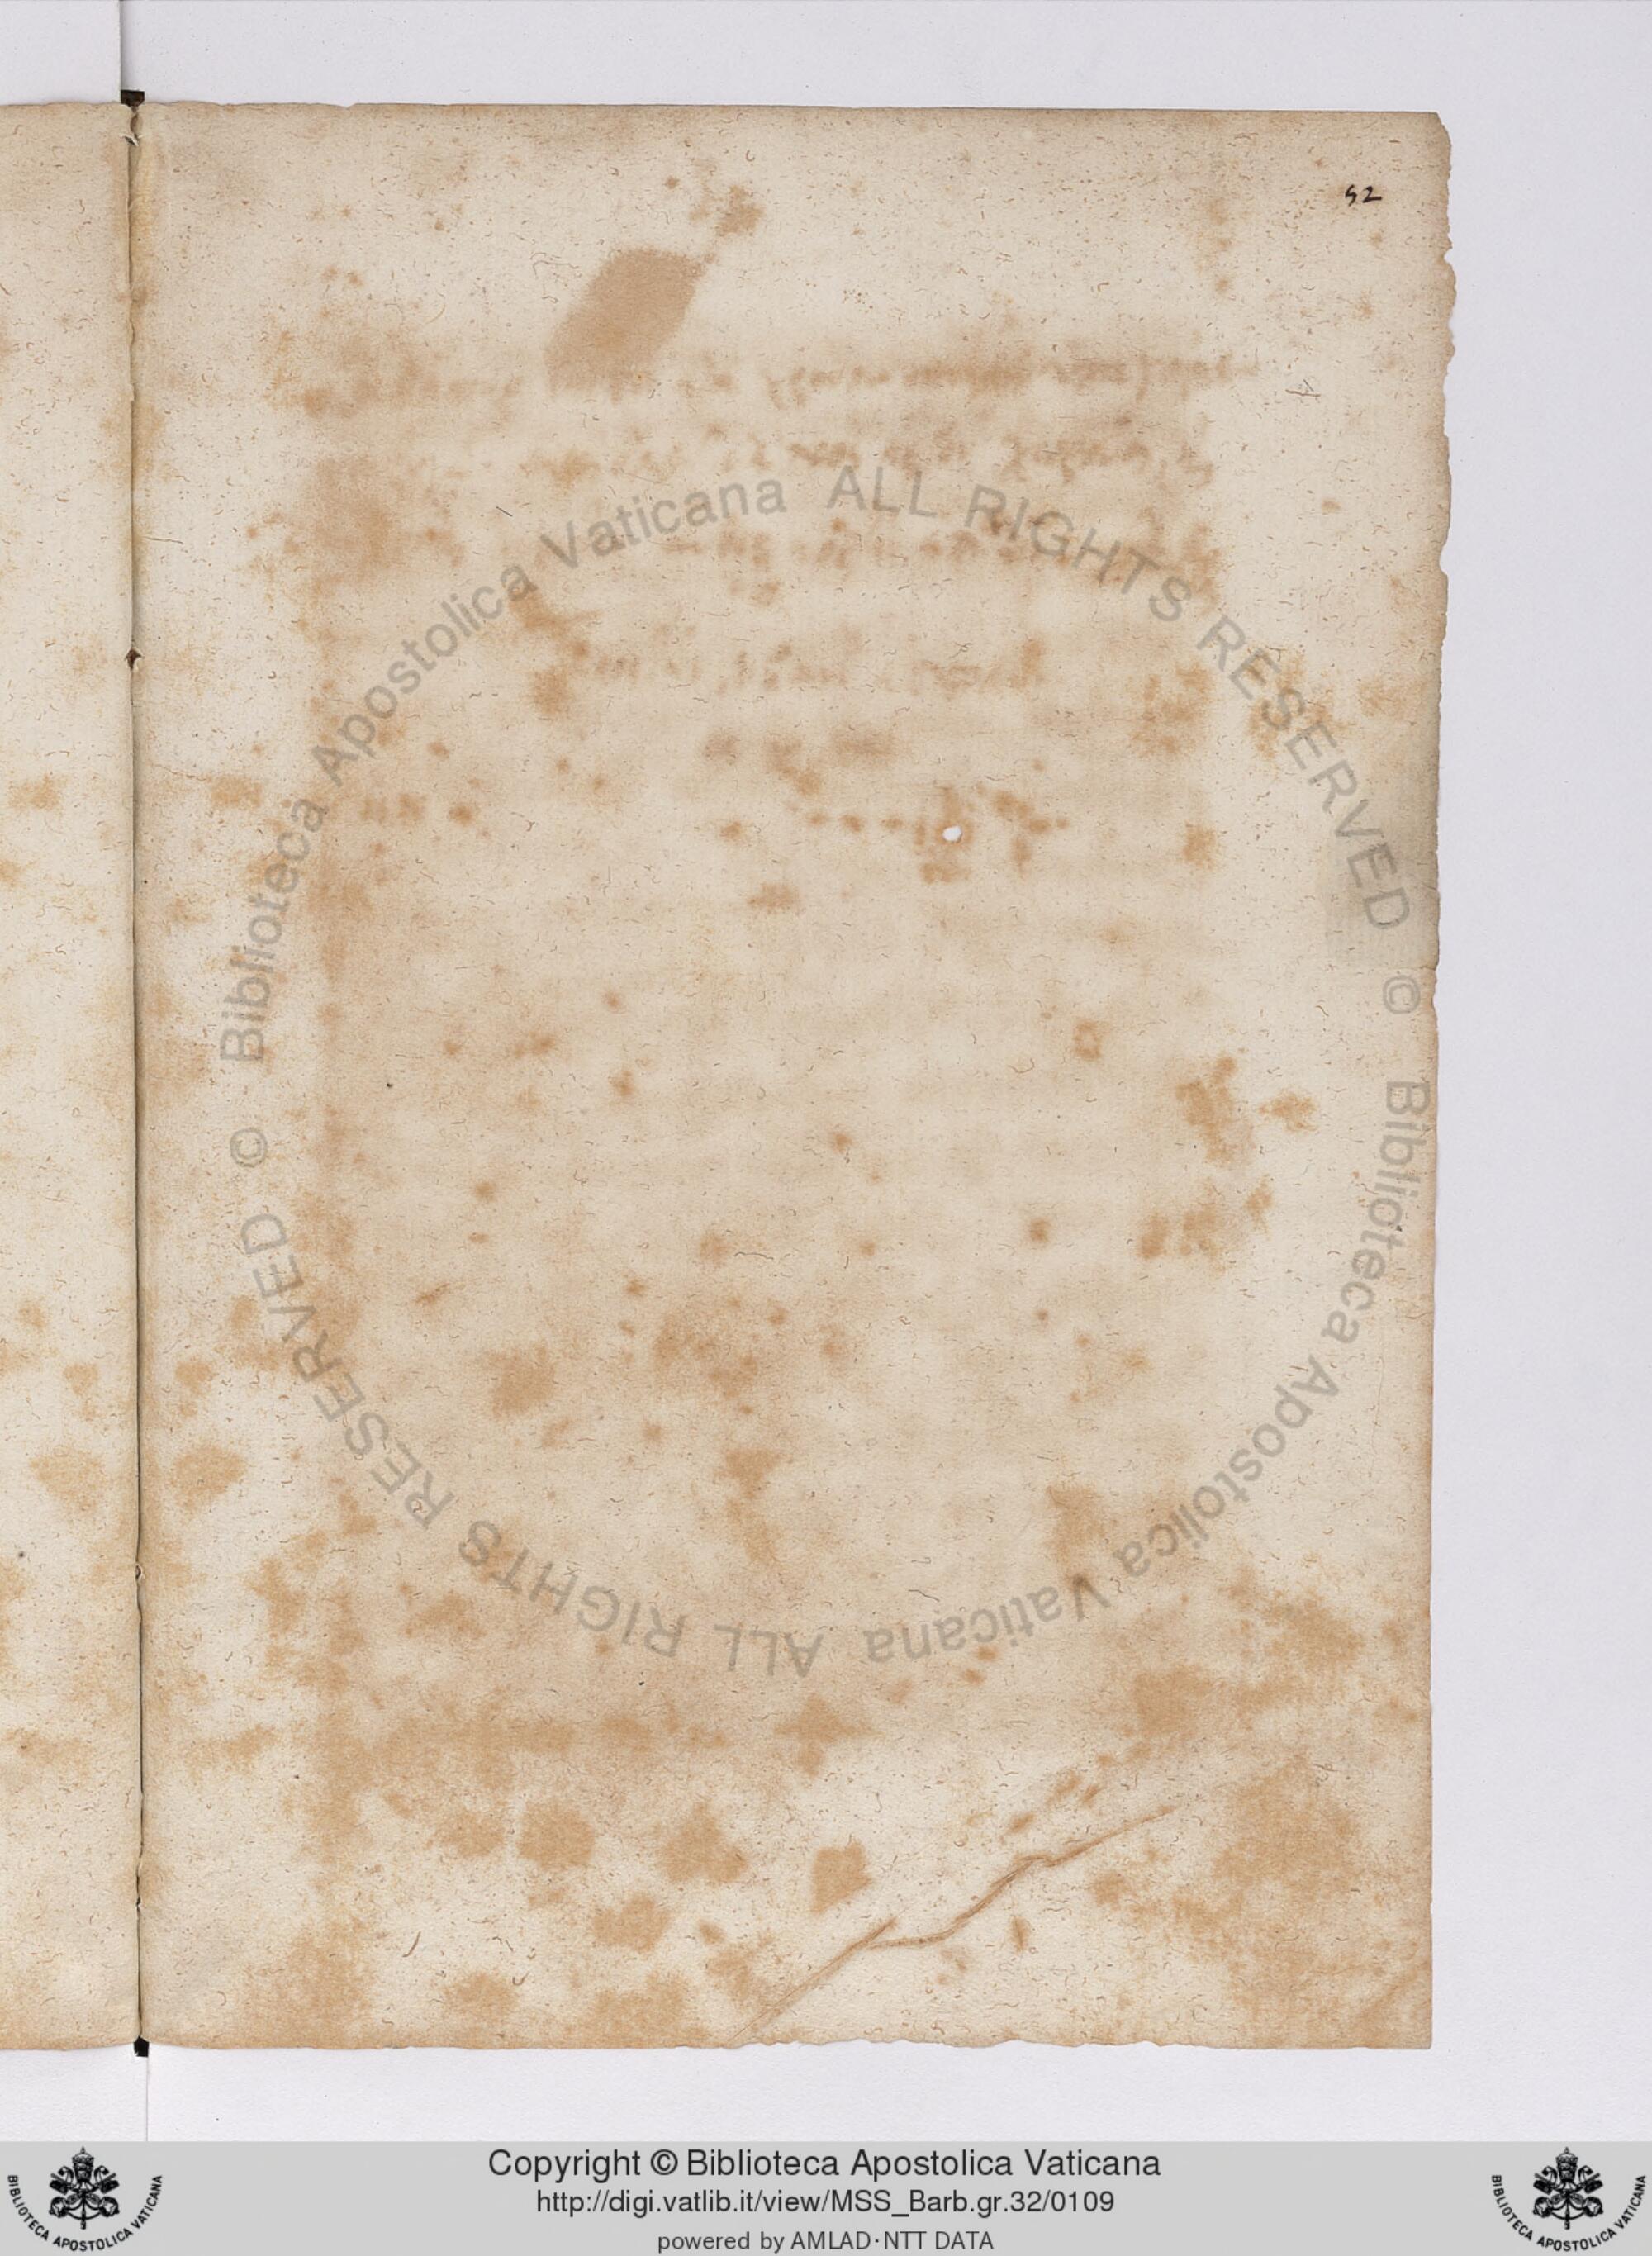 52
© Biblioteca Apostolica Vaticana ALL RIGHTS RESERVED
© Biblioteca Apostolica Vaticana ALL RIGHTS RESERVED
Copyright © Biblioteca Apostolica Vaticana
http://digi.vatlib.it/view/MSS_Barb.gr.32/0109
powered by AMLAD·NTT DATA
BIBLIOTECA APOSTOLICA VATICANA
BIBLIOTECA APOSTOLICA VATICANA